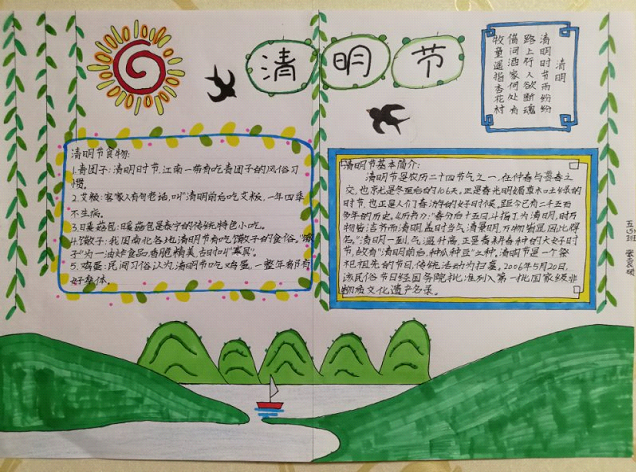 清明节
清明
清明时节雨纷纷
路上行人欲断魂
借问酒家何处有
牧童遥指杏花村
清明节食物:
1.青团子:清明时节,江南一带有吃青团子的风俗习
惯。
2.艾粄:客家人有句老话,叫"清明前后吃艾粄,一年四季
不生病。
3.暖菇包:暖菇包是泰宁的传统特色小吃。
4.馓子:我国南北各地清明节有吃馓子的食俗。"馓
子"为一油炸食品,香脆精美,古时叫"寒具"。
5.鸡蛋:民间习俗认为清明节吃鸡蛋,一整年都有
好身体。
清明节基本简介:
清明节是农历二十四节气之一,在仲春与暮春之
交,也就是冬至后的106天。正是春光明媚草木吐绿的
时节,也正是人们春游的好时候,距今已有二千五百
多年的历史。《历书》:"春分后十五日,斗指丁,为清明,时万
物皆洁齐而清明,盖时当气清景明,万物皆显,因此得
名。"清明一到,气温升高,正是春耕春种的大好时
节,故有"清明前后,种瓜种豆"之种。清明节是一个祭
祀祖先的节日,传统活动为扫墓。2006年5月20日,
该民俗节日经国务院批准列入第一批国家级非
物质文化遗产名录。